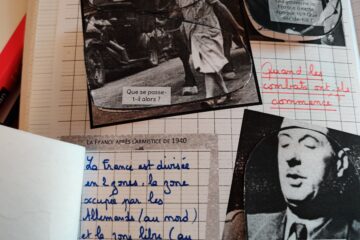 Que se passe-
t-il alors ?
Quand les
combats ont-ils
commencé
LA FRANCE APRÈS L'ARMISTICE DE 1940
La France est divisée
en 2 zones : la zone
occupée par les
Allemands (au nord)
et la zone libre (au